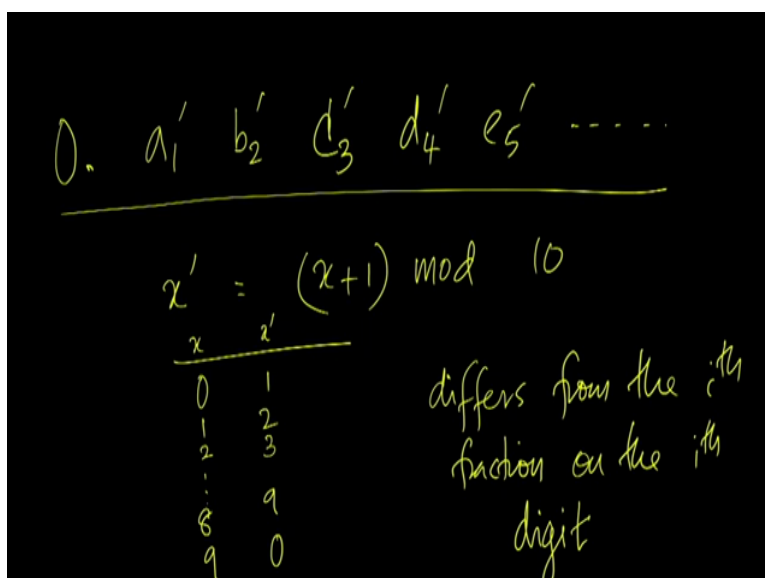 0. a₁′ b₂′ c₃′ d₄′ e₅′ ------
x′ = (x+1) mod 10
x x′
0 1
1 2
2 3
⋮
8 9
9 0
differs from the ith
fraction on the ith
digit